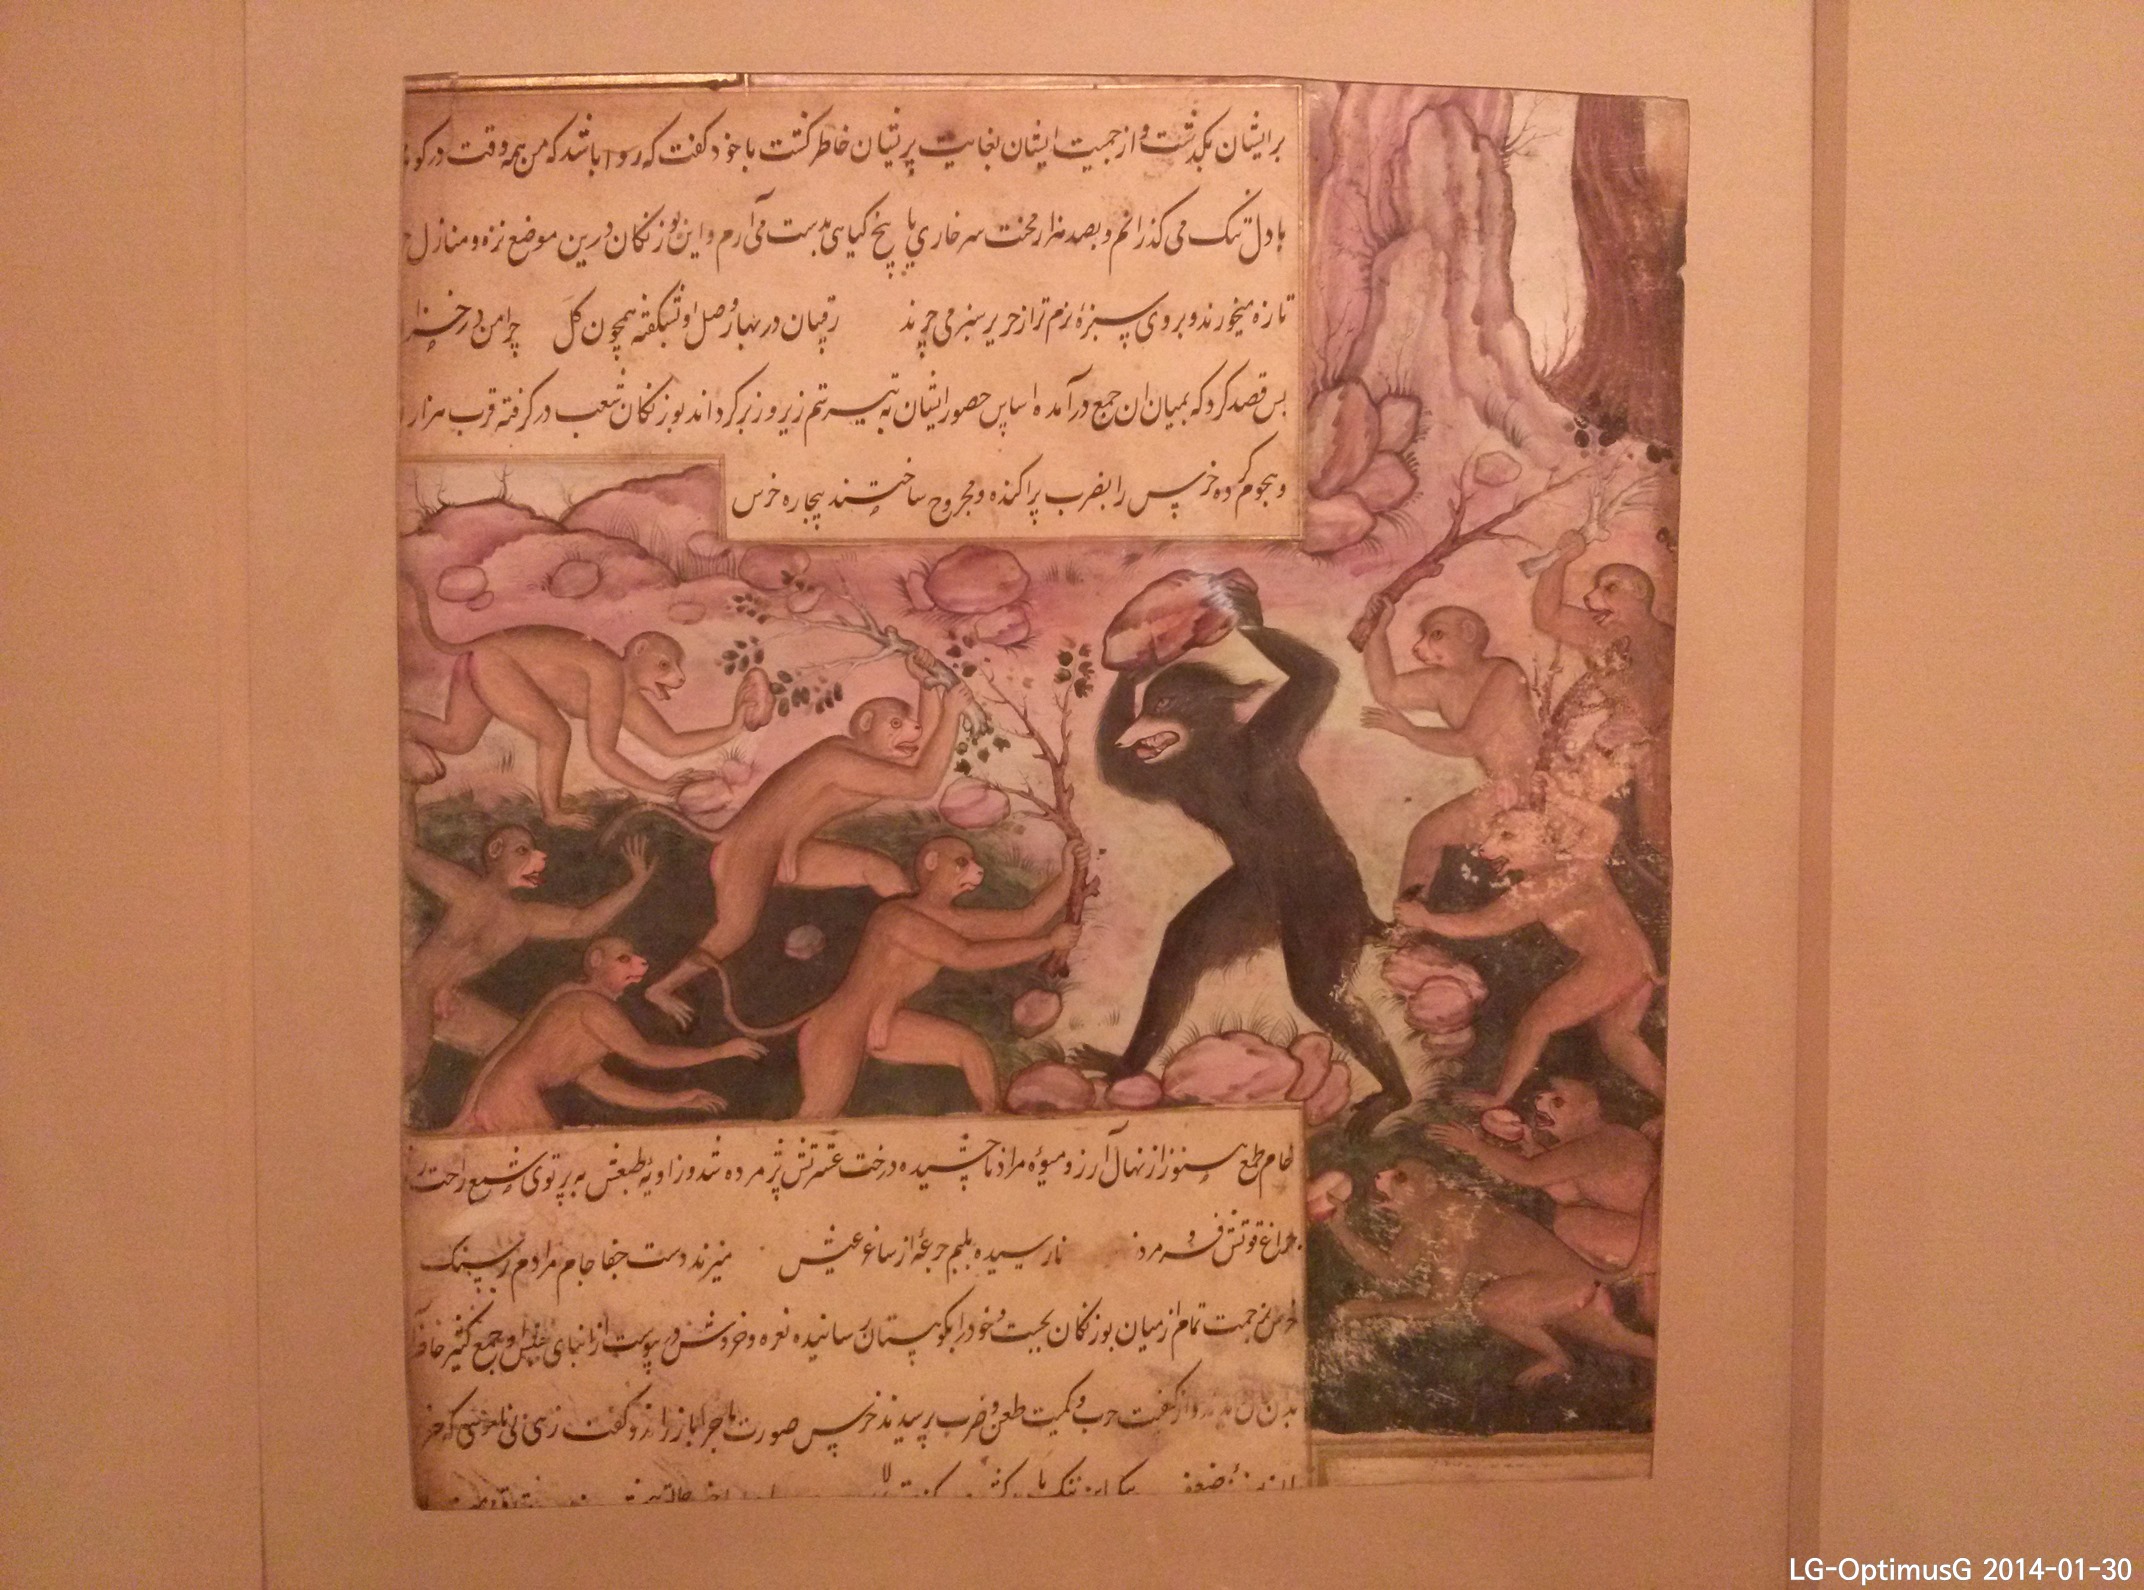 برایشان بگذشت و از جمعیت ایشان بغایت پریشان خاطر گشت با خود گفت که روا باشد که من همه وقت در کوه
با دل تنگ می گذرانم و بصد هزار محنت سر خاری یا بیخ گیاهی بدست می آرم و این بوزنگان درین موضع نزه و منازل
تازه میخورند و بر روی سبزهٔ نرم تر از حریر سبز می چرند رقیبان در بهار وصل او شکفته همچون گل چرا من در خزان
پس قصد کرد که بمیان ان جمع در آمده اساس حضور ایشان به تیشه ستم زیر و زبر گرداند بوزنگان شعب در گرفته قرب هزار
و هجوم کرده خرس را بضرب پراکنده و مجروح ساختند بیچاره خرس
خام طمع هنوز از نهال آرزو میوهٔ مراد ناچشیده درخت عشرتش پژمرده شد و زاویهٔ طبعش به پرتوی شمع راحت
چراغ قوتش فرو مرد نارسیده بلبم جرعهٔ از ساغر عیش میزند دست جفا جام مرادم بر سنگ
خرس تمام از میان بوزنگان بجست و خود را بکوهستان رسانیده نعره و خروش در پیوست از ابنای جنس او جمع کثیر
حرب و کمیت طعن و ضرب پرسیدند خرس صورت ماجرا باز راند و گفت زهی بی ناموسی که خرس
LG-OptimusG 2014-01-30